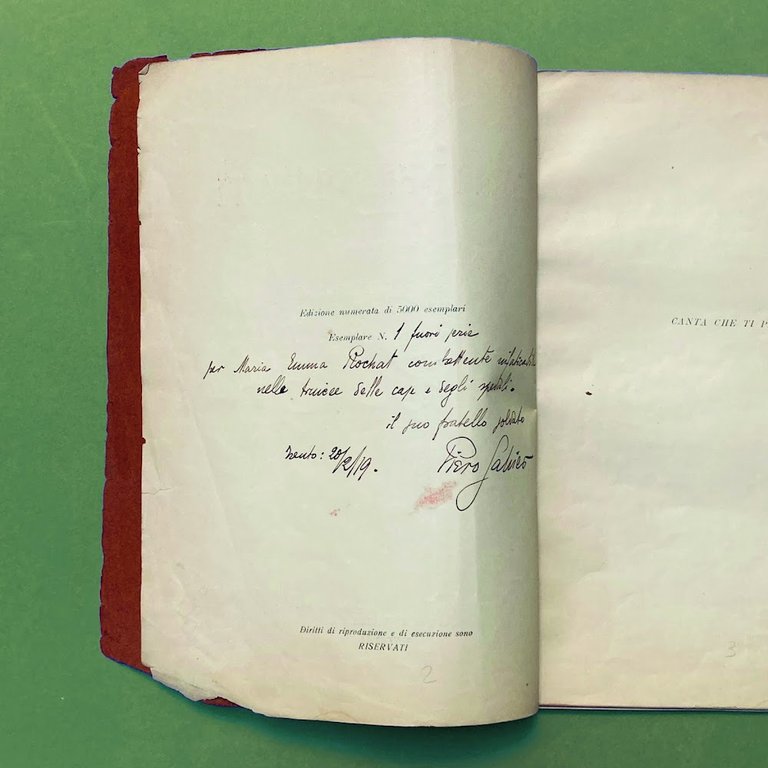 Edizione numerata di 5000 esemplari
Esemplare N. 1 fuori prie
per Maria Emma Rochat combattente
nelle trincee delle case e degli spedali.
il suo fratello soldato
Trento: 20/2/19. Piero Jahier
Diritti di riproduzione e di esecuzione sono
RISERVATI
2
CANTA CHE TI P
3